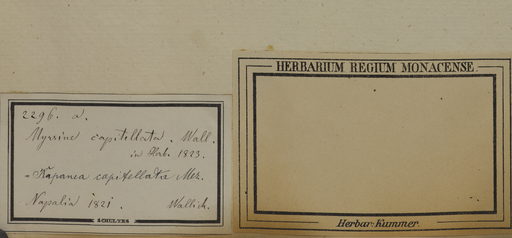 2296. a.
Myrsine capitellata. Wall.
in Herb. 1823.
= Rapanea capitellata Mez.
Napalia 1821. Wallich.
SCHULTES
HERBARIUM REGIUM MONACENSE
Herbar. Kummer.